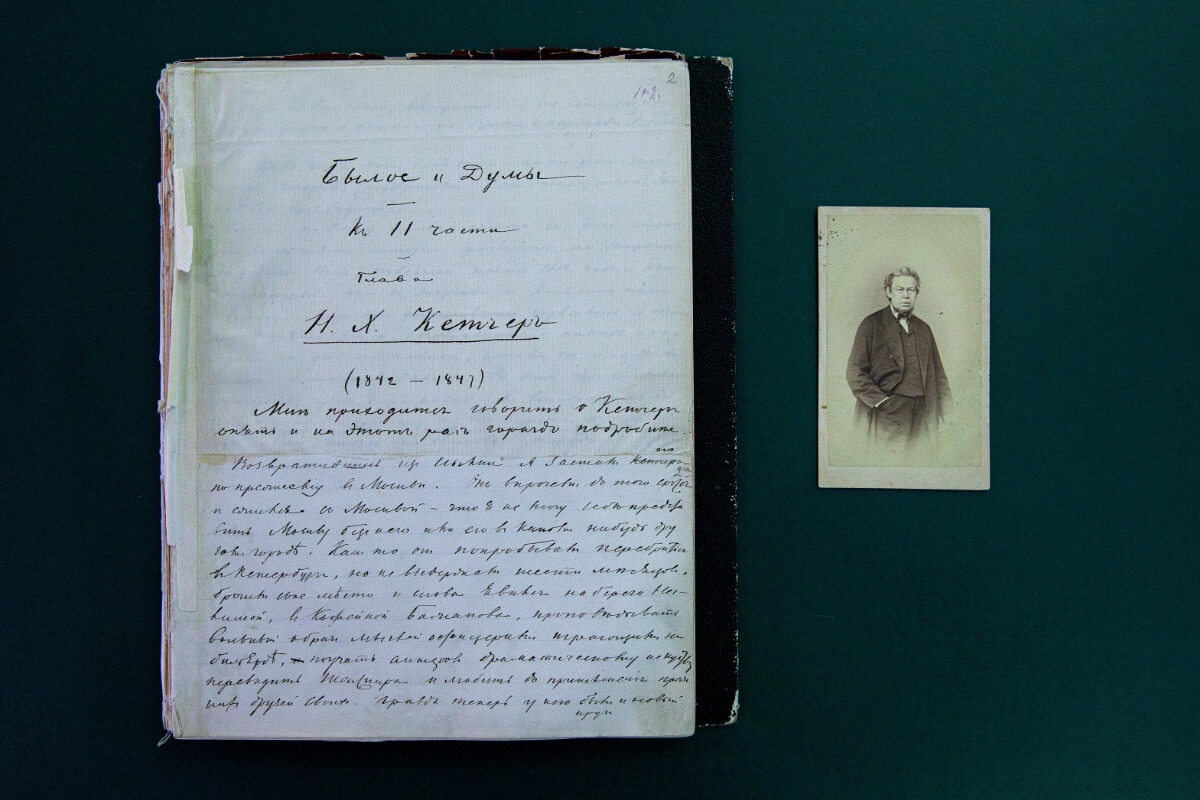 2
102.
Былое и Думы
Къ II части
Глава
Н. Х. Кетчеръ
(1842 — 1847)
Мнѣ приходится говорить о Кетчерѣ
опять и на этотъ разъ гораздо подробнѣе.
Возвратившись изъ ссылки я засталъ его
по прежнему въ Москвѣ. Онъ впрочемъ до того сросся
и сжился съ Москвой — что я не могу себѣ представ
вить Москву безъ него или его въ какомъ нибудь дру
гомъ городѣ. Какъ то онъ попробывалъ перебраться
въ Петербургъ, но не выдержалъ шести мѣсяцевъ,
бросилъ свое мѣсто и снова явился на берега Нег-
линной, въ Кофейной Бажанова, проповѣдывать
вольный образъ мыслей офицерамъ играющимъ на
бильярдѣ, поучать актеровъ драматическому искуству,
переводить Шекспира и любить до притѣсненія преж
нихъ друзей своихъ. Правда теперь у него былъ и новый
кругъ